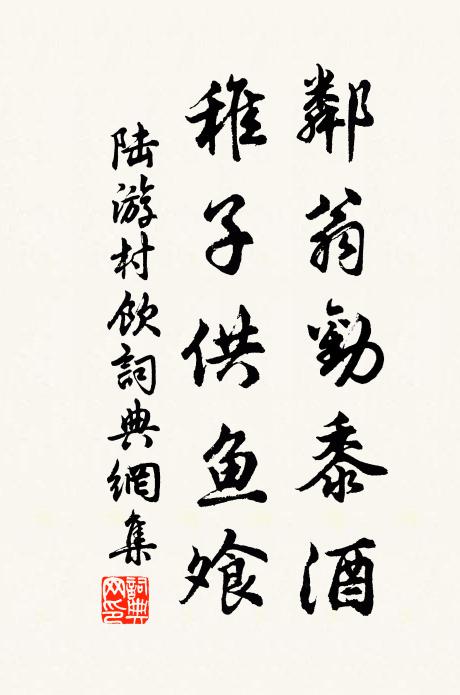 鄰翁勸黍酒
稚子供魚飧
陸游村飲詞典網集
詞典網印